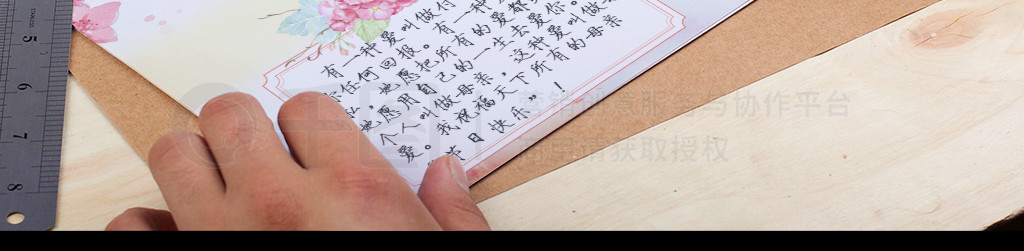 5
6
7
8
有一种爱叫做付
任何回报。有一种
私，她愿把所有的爱都
她愿用自己的一生去爱你。
个人叫做母亲，这种爱叫做
爱。我祝福天下所有的母亲
节日快乐”！
营销创意服务与协作平台
商用请获取授权